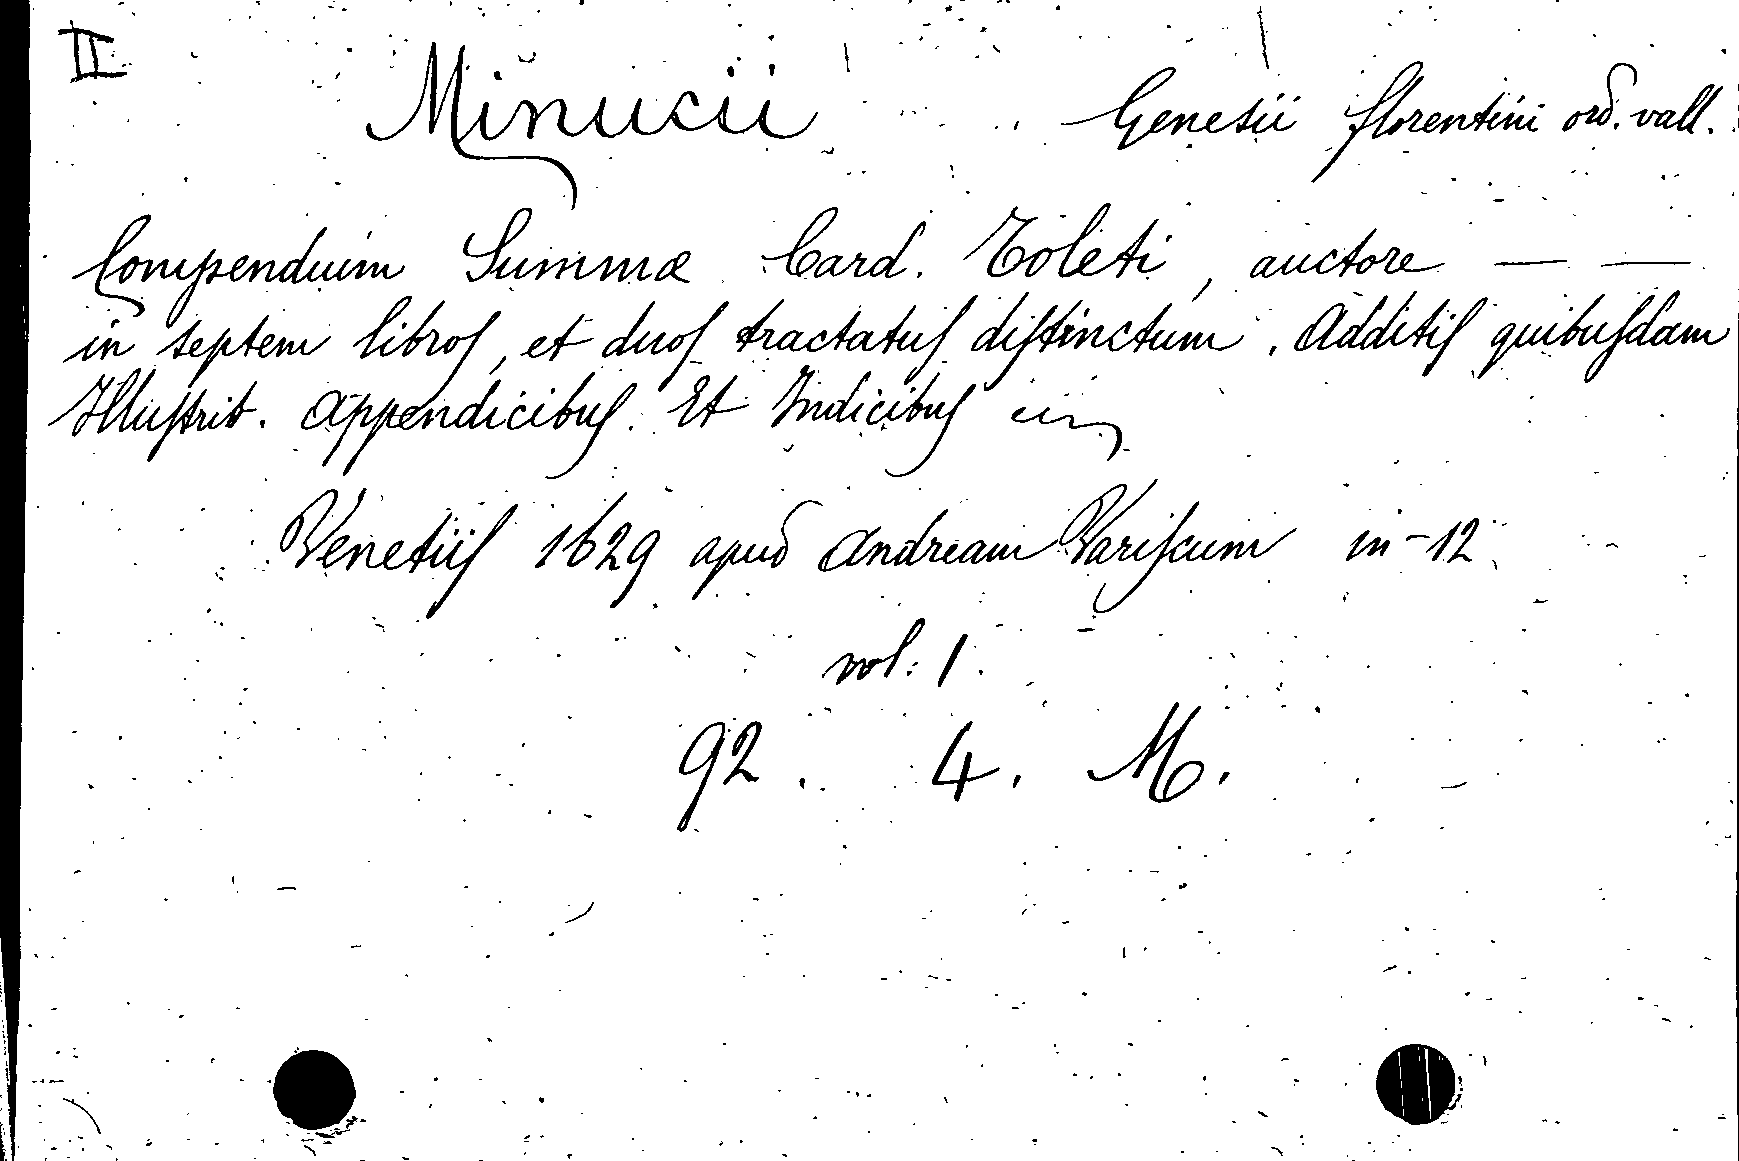 II
Minucii Genesii florentini ord. vall.
Compendium Summæ Card. Toleti, auctore — —
in septem libros, et duos tractatus distinctum. Additis quibusdam
Illustrib. Appendicibus. Et Indicibus
Venetiis 1629 apud Andream Variscum in-12
vol: 1.
92. 4. M.